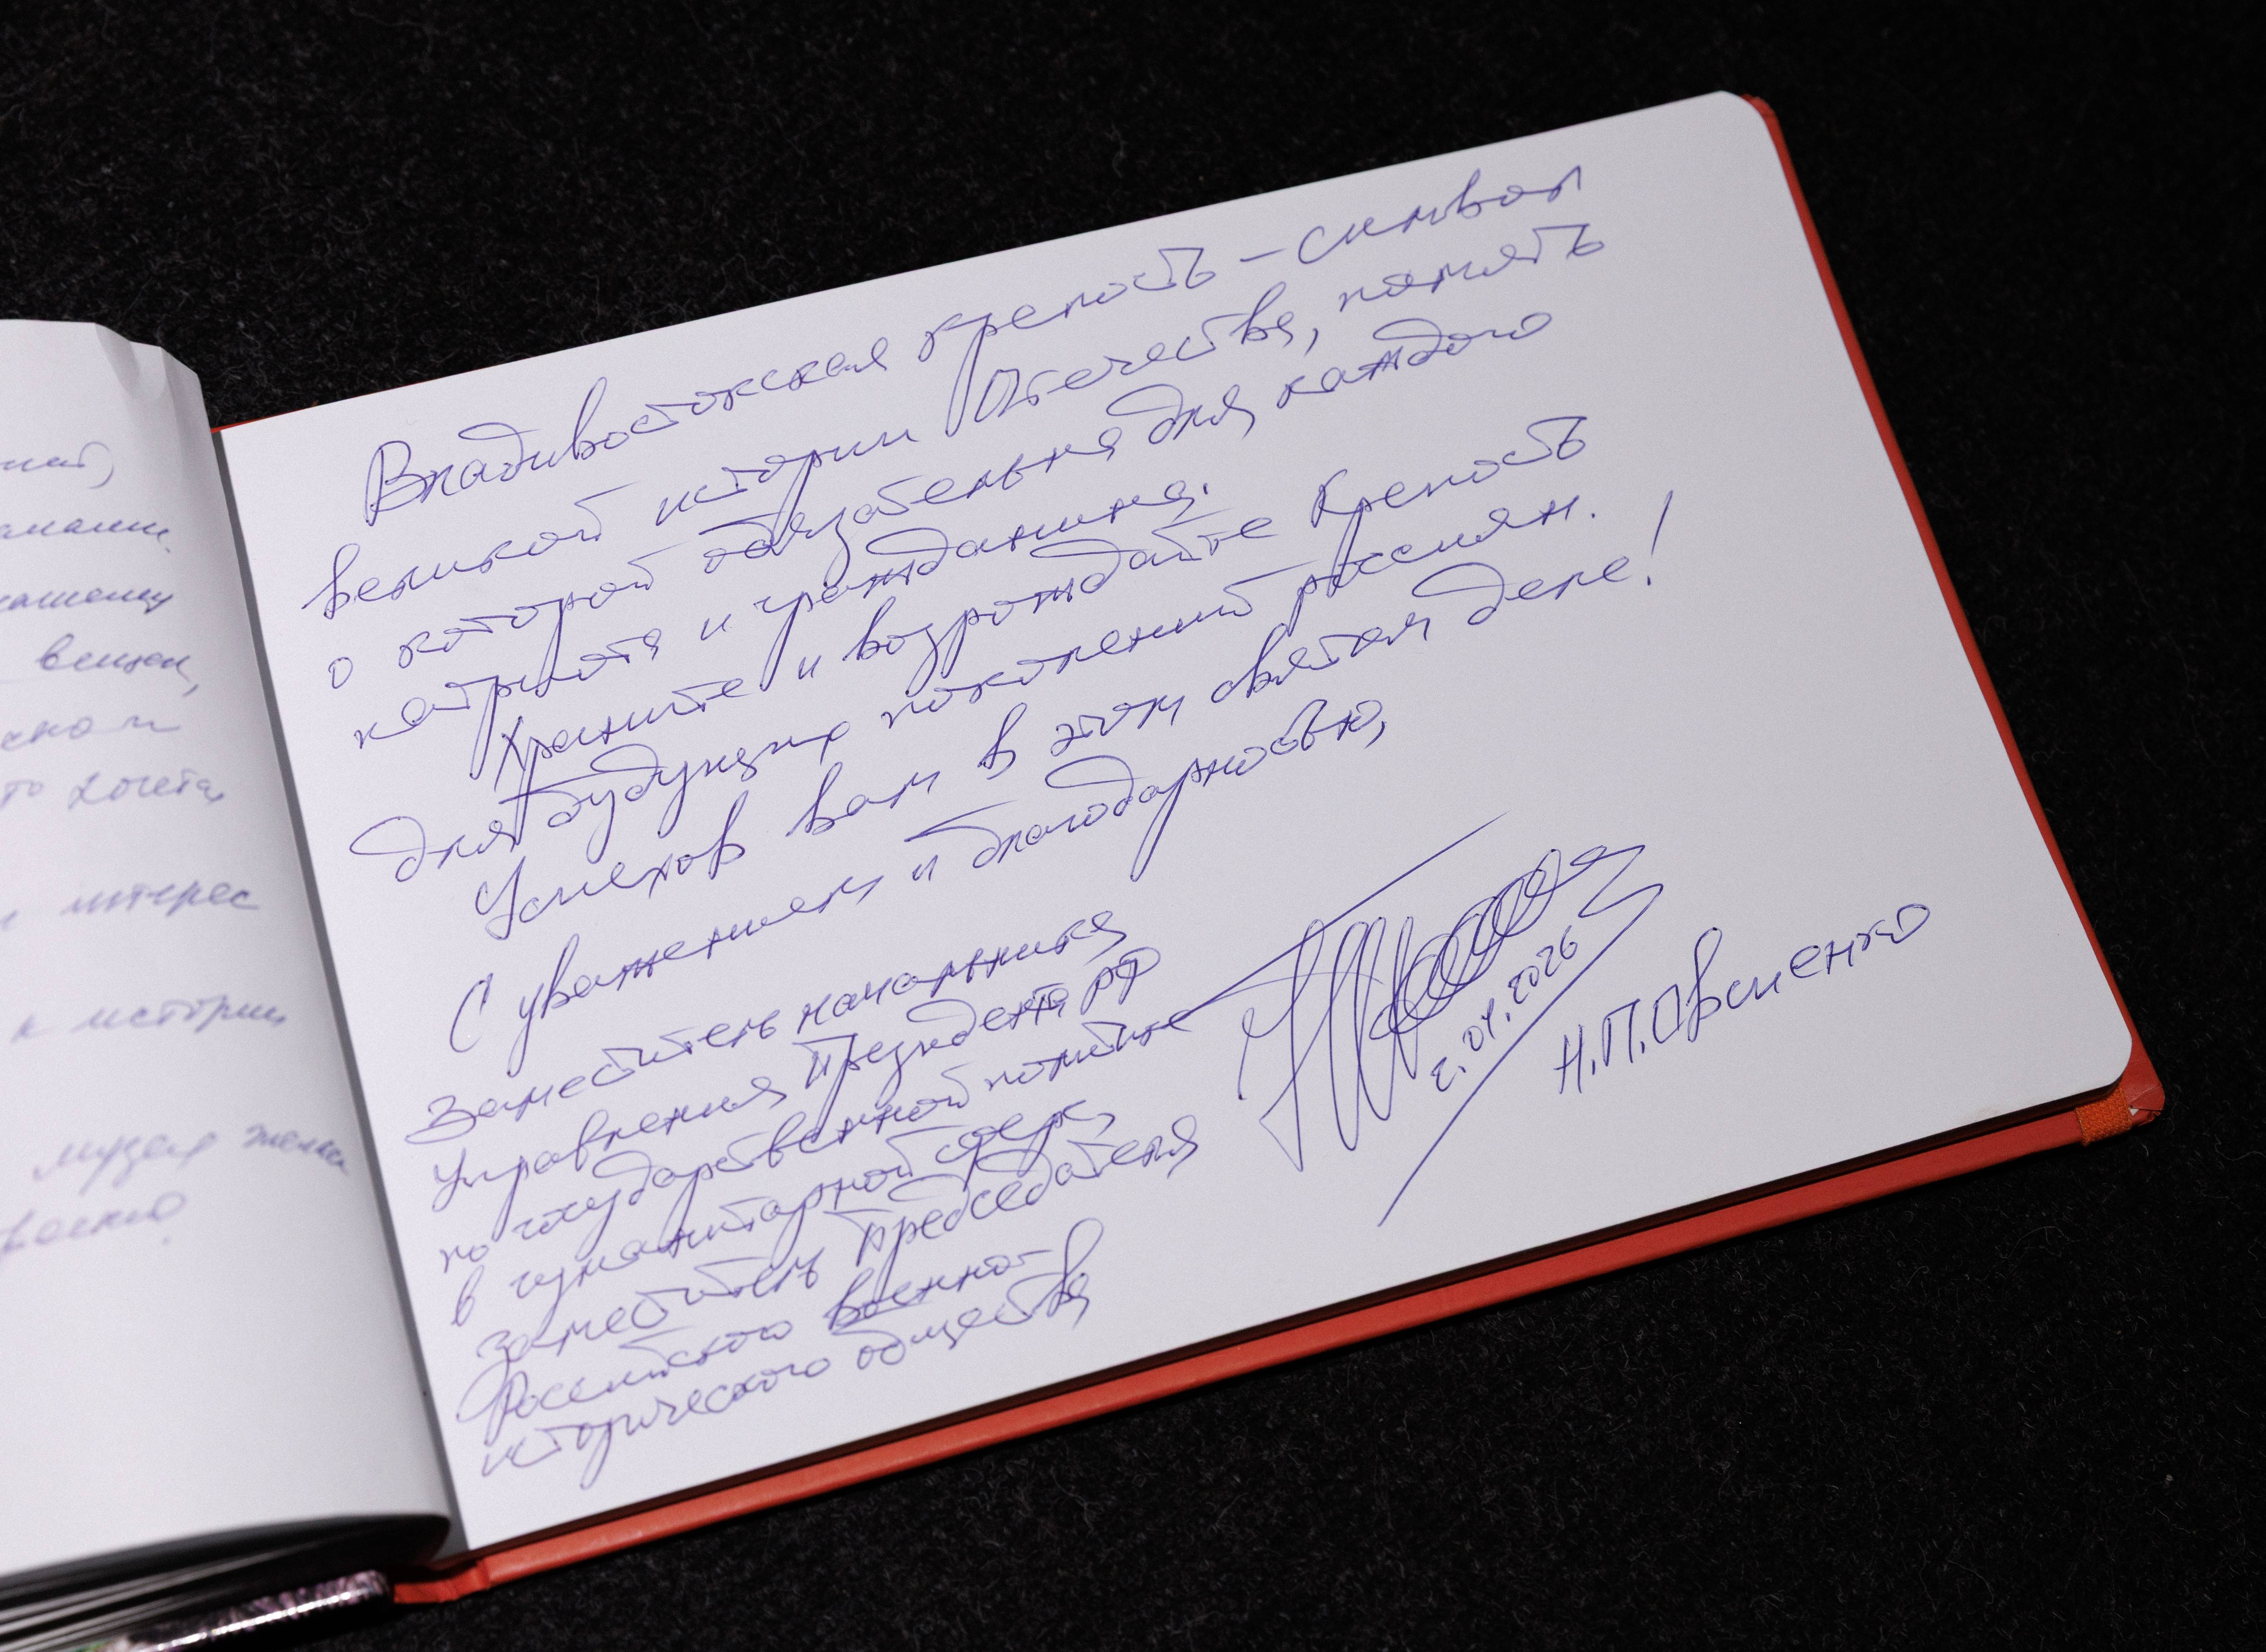 вещей,
хочется
интерес
к истории
музея
Владивостокская крепость – символ
великой истории Отечества, память
о которой обязательна для каждого
патриота и гражданина.
Храните и возрождайте Крепость
для будущих поколений россиян.
Успехов вам в этом святом деле!
С уважением и благодарностью,
Заместитель начальника
Управления Президента РФ
по государственной политике
в гуманитарной сфере,
заместитель Председателя
Российского военно-
исторического общества
2.04.2026
Н.П. Овсиенко